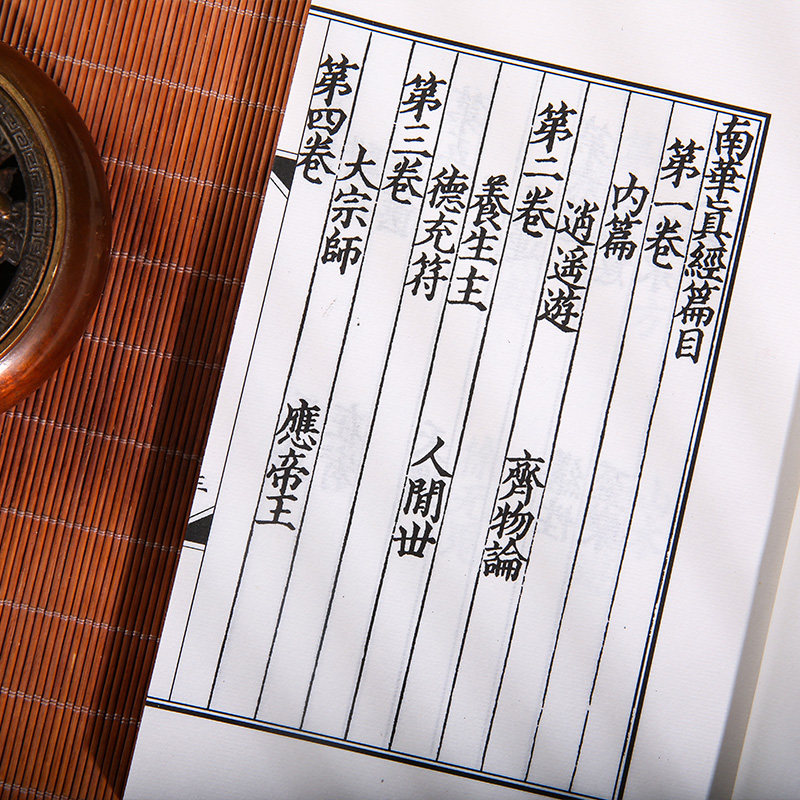 南華真經篇目
第一卷
内篇
逍遥遊 齊物論
第二卷
養生主 人閒丗
德充符
第三卷
大宗師 應帝王
第四卷
三